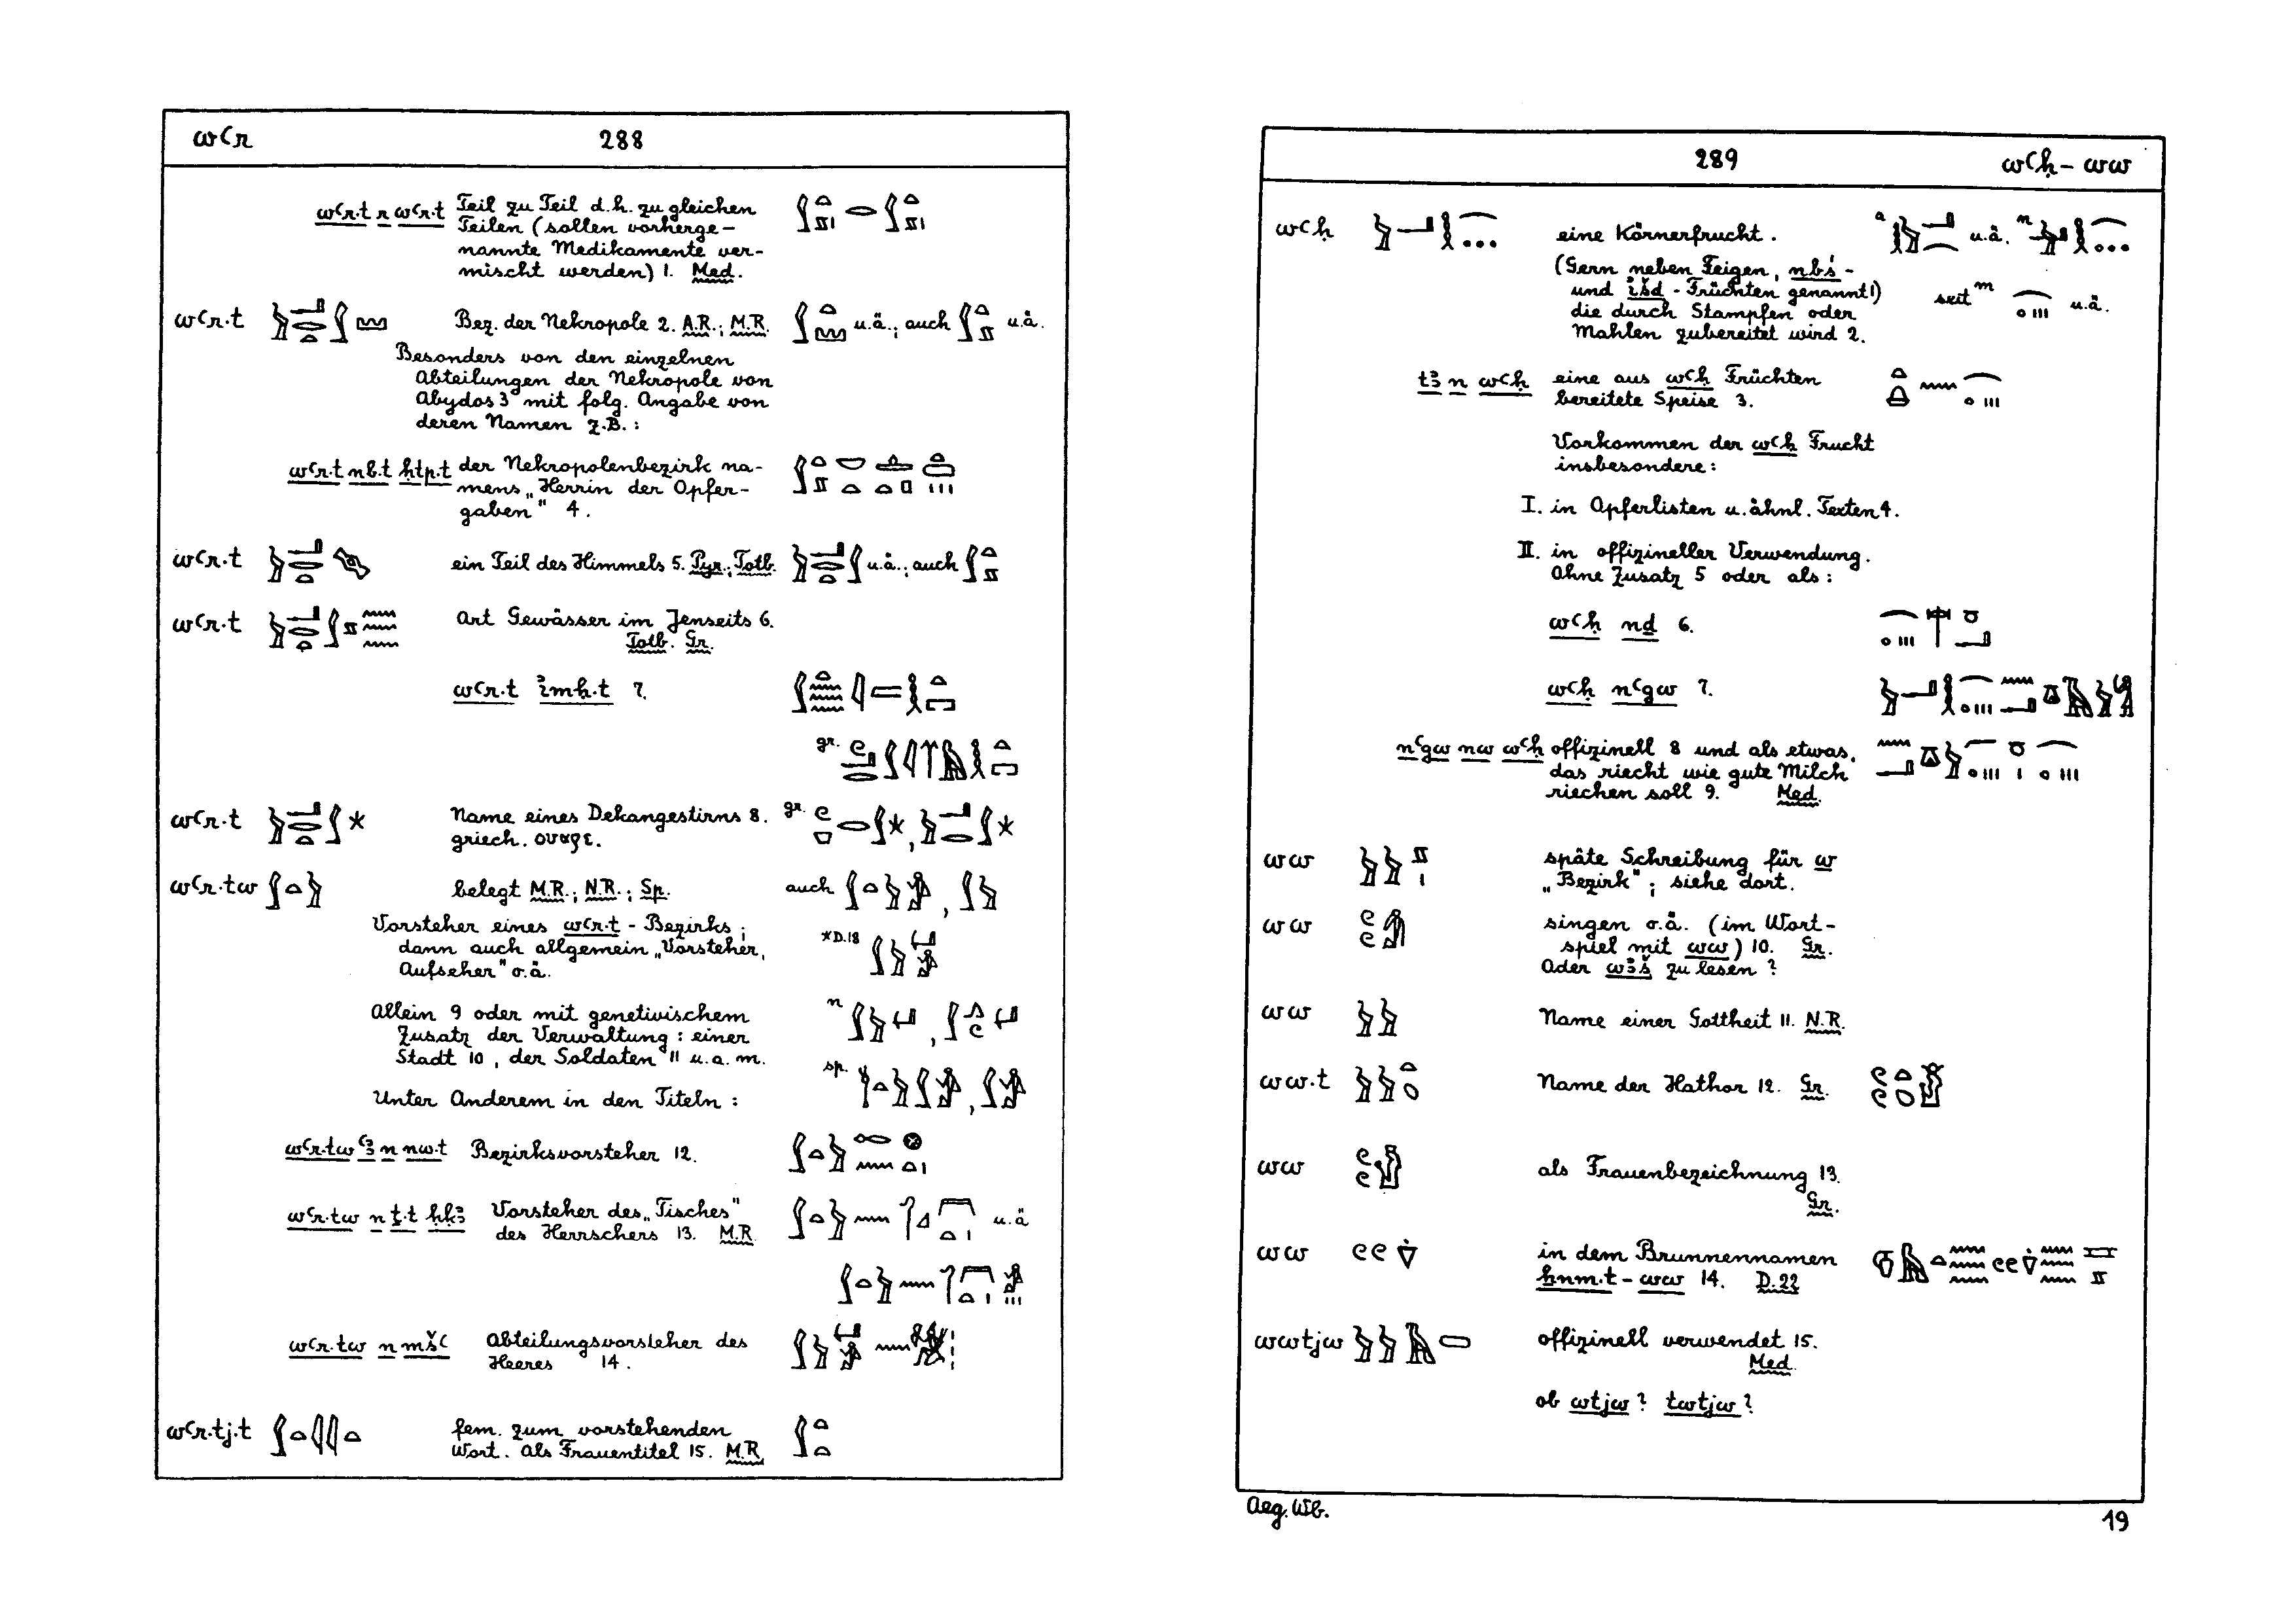 wꜥr 288
wꜥr.t r wꜥr.t Teil zu Teil d.h. zu gleichen
Teilen (sollen vorherge-
nannte Medikamente ver-
mischt werden) 1. Med.
wꜥr.t Bez. der Nekropole 2. A.R.; M.R. u.ä.; auch u.ä.
Besonders von den einzelnen
Abteilungen der Nekropole von
Abydos 3 mit folg. Angabe von
deren Namen z.B.:
wꜥr.t nb.t ḥtp.t der Nekropolenbezirk na-
mens „Herrin der Opfer-
gaben" 4.
wꜥr.t ein Teil des Himmels 5. Pyr.; Totb. u.ä.; auch
wꜥr.t Art Gewässer im Jenseits 6.
Totb. Gr.
wꜥr.t imḥ.t 7.
gr.
wꜥr.t Name eines Dekangestirns 8. gr.
griech. ουαρε.
wꜥr.tw belegt M.R.; N.R.; Sp. auch
Vorsteher eines wꜥr.t-Bezirks;
dann auch allgemein „Vorsteher, *D.18
Aufseher" o.ä.
Allein 9 oder mit genetivischem n
Zusatz der Verwaltung: einer
Stadt 10, der Soldaten 11 u.a.m.
sp.
Unter Anderem in den Titeln:
wꜥr.tw ꜥꜣ n nw.t Bezirksvorsteher 12.
wꜥr.tw n ṯ.t ḥḳꜣ Vorsteher des „Tisches" u.ä
des Herrschers 13. M.R.
wꜥr.tw n mšꜥ Abteilungsvorsteher des
Heeres 14.
wꜥr.tj.t fem. zum vorstehenden
Wort. Als Frauentitel 15. M.R.
289 wꜥḥ - ww
wꜥḥ eine Körnerfrucht. a u.ä. n
(Gern neben Feigen, nbś-
und išd-Früchten genannt1) seit m u.ä.
die durch Stampfen oder
Mahlen zubereitet wird 2.
tꜣ n wꜥḥ eine aus wꜥḥ Früchten
bereitete Speise 3.
Vorkommen der wꜥḥ Frucht
insbesondere:
I. in Opferlisten u. ähnl. Texten 4.
II. in offizineller Verwendung.
Ohne Zusatz 5 oder als:
wꜥḥ nḏ 6.
wꜥḥ nꜥgw 7.
nꜥgw nw wꜥḥ offizinell 8 und als etwas,
das riecht wie gute Milch
riechen soll 9. Med.
ww späte Schreibung für w
„Bezirk"; siehe dort.
ww singen o.ä. (im Wort-
spiel mit ww) 10. Gr.
Oder wꜣš zu lesen?
ww Name einer Gottheit 11. N.R.
ww.t Name der Hathor 12. Gr.
ww als Frauenbezeichnung 13.
Gr.
ww in dem Brunnennamen
ẖnm.t-ww 14. D.22
wwtjw offizinell verwendet 15.
Med.
ob wtjw? twtjw?
Aeg. Wb. 19